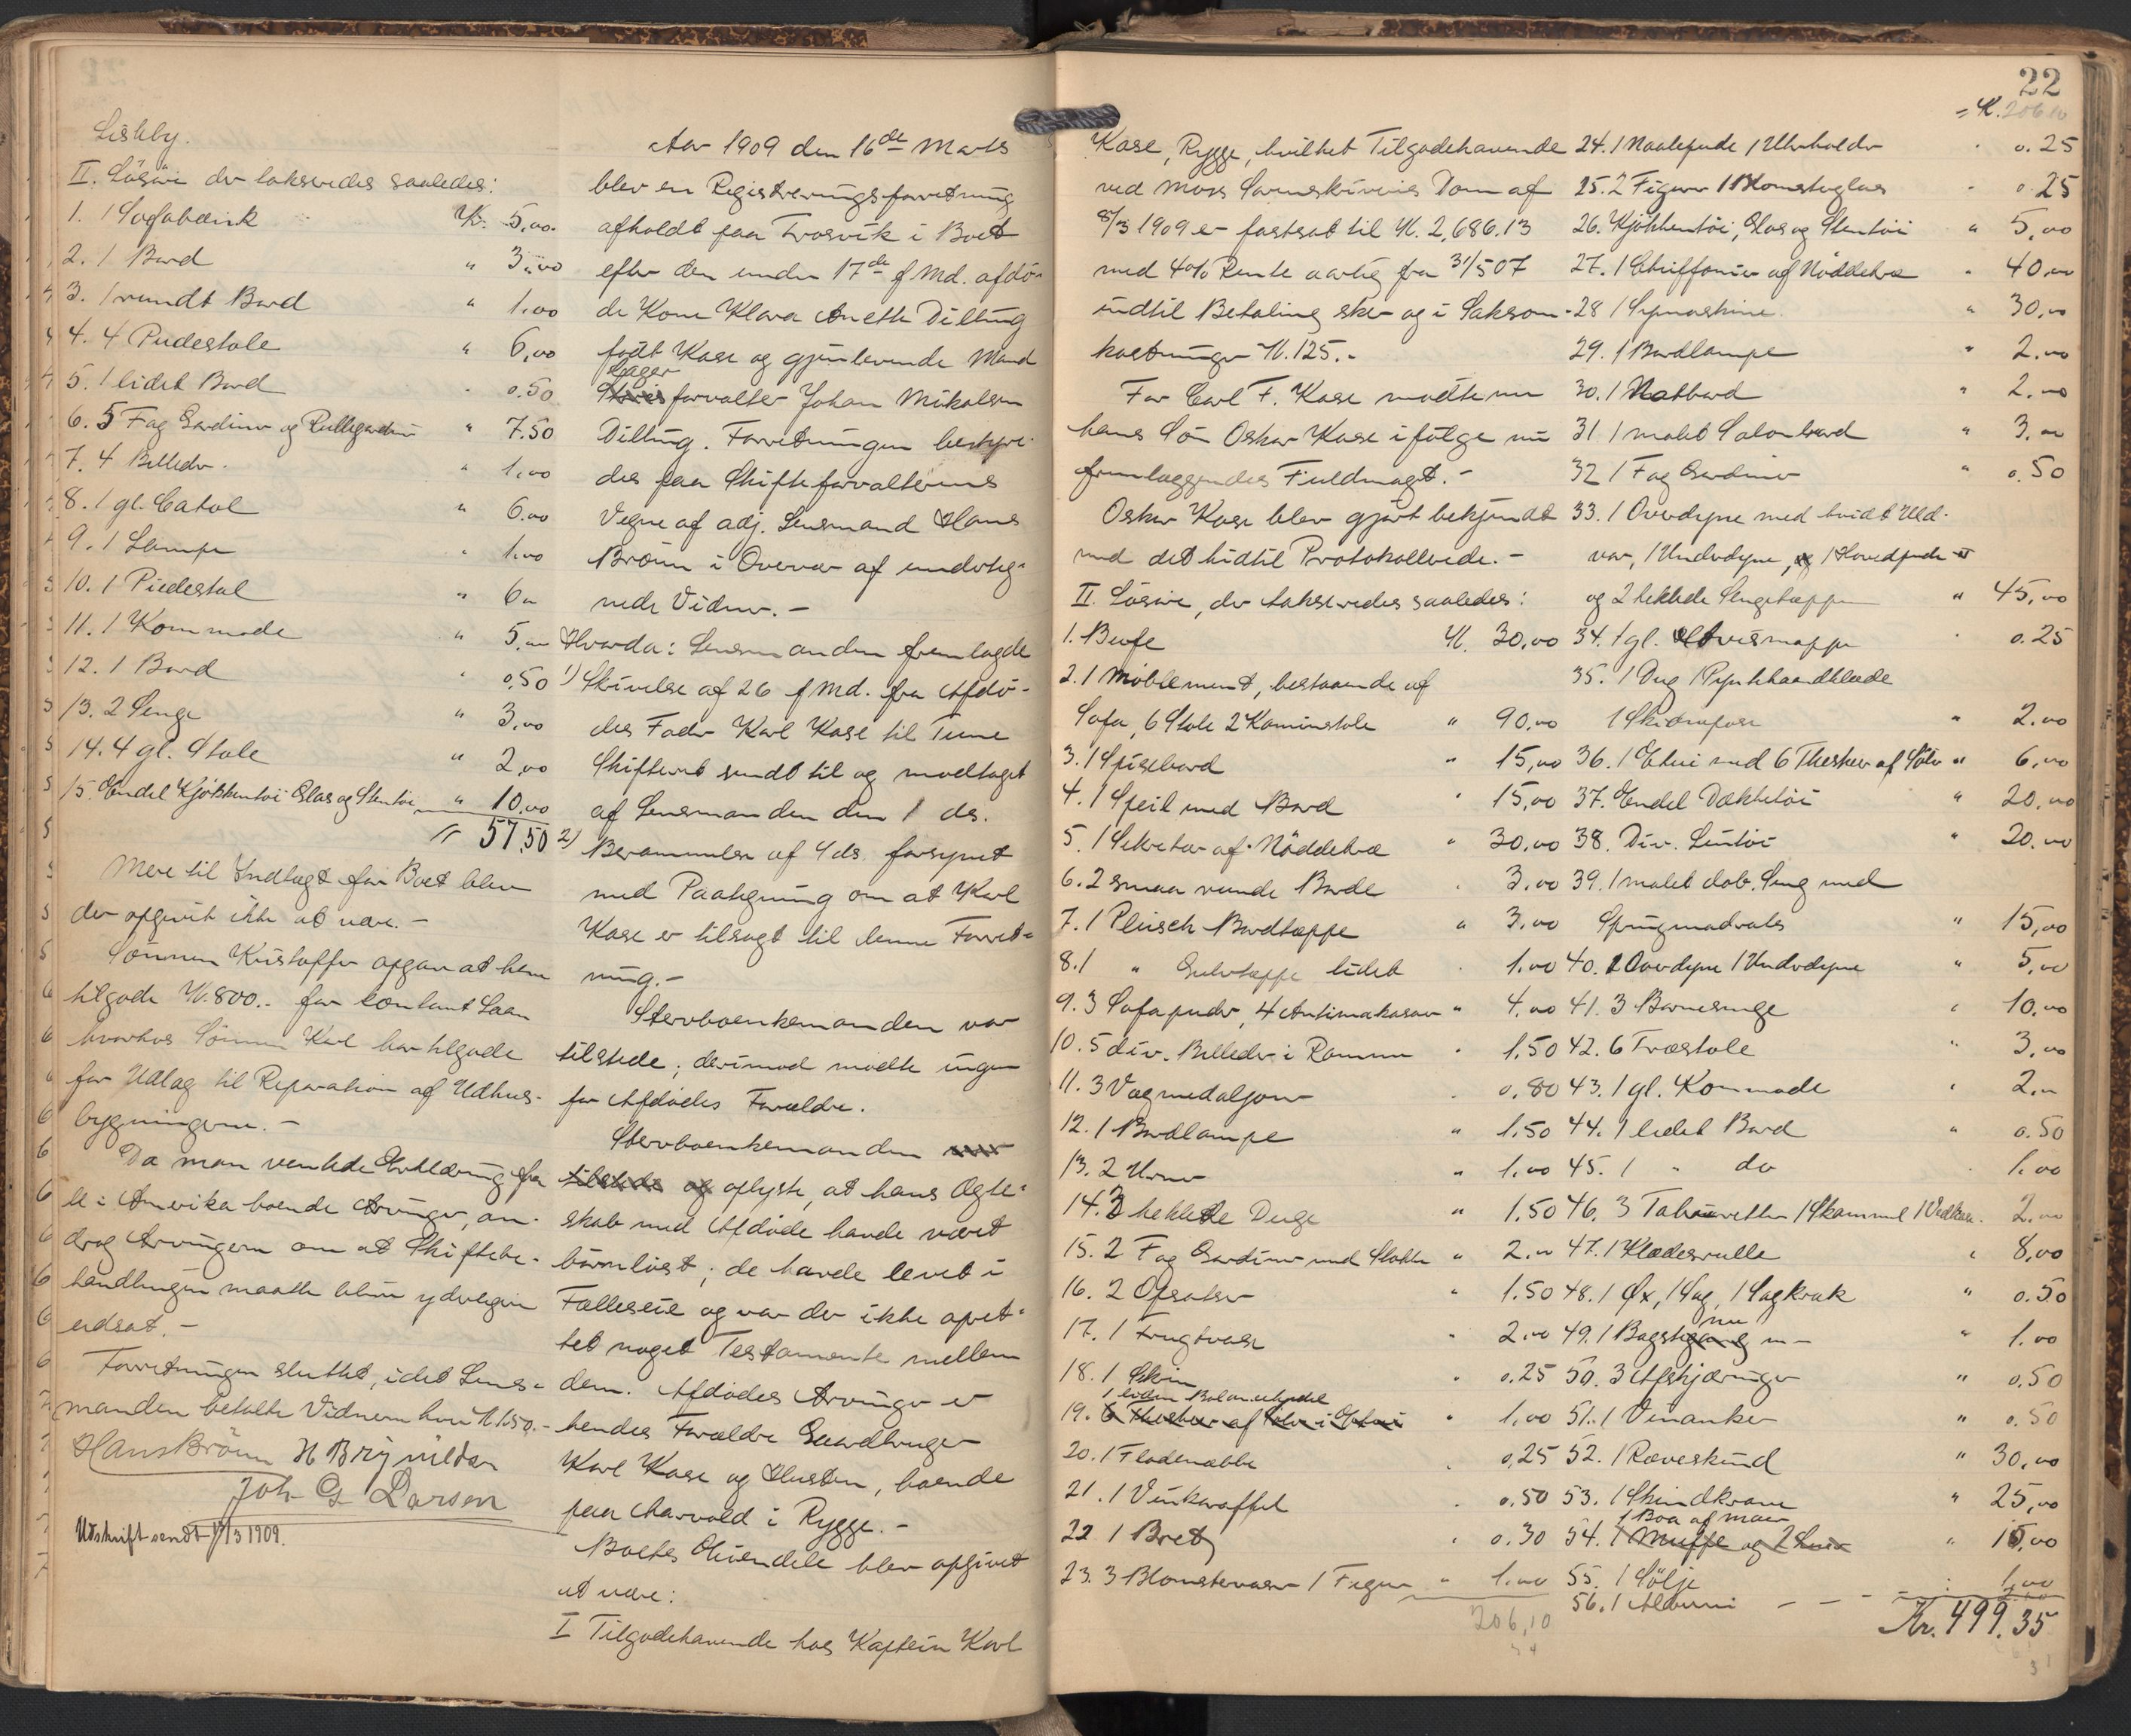 Lishby.
II. Løsøre der takseredes saaledes:
1. 1 Sofabænk Kr. 5,00.
2. 1 Bord " 3,00
3. 1 rundt Bord " 1,00
4. 4 Pudestole " 6,00
5. 1 lidet Bord " 0.50
6. 5 Fag Gardiner og Rullegardin " 7.50
7. 4 Billeder. " 1,00
8. 1 gl. Chatol " 6.00
9. 1 Lampe " 1.00
10. 1 Piedestal " 6 "
11. 1 Kommode " 5, "
12. 1 Bord " 0.50
13. 2 Senge " 3,00
14. 4 gl. Stole " 2,00
15. Endel Kjökkentöi Glas og Stentöi " 10,00
57,50
Mere til Indtægt for Boet blev
der opgivet ikke at være. -
Sønnen Kristoffer opgav at have
tilgode K. 800.- for contant Laan
hvorhos Sønnen Karl har tilgode
for Udlæg til Reparation af Udhus-
bygningerne. -
Da man ventede Erklæring fra
de i Amerika boende Arvinger, an-
drog Arvingerne om at Skiftebe-
handlingen maatte blive yderligere
udsat. -
Forretningen sluttet, idet Lens-
manden betalte Vidnerne hver K. 1.50.-
Hans Brönn H Brynildsen
Joh. G. Larsen
Utskrift sendt 17/3 1909.
Aar 1909 den 16de Marts
blev en Registreringsforretning
afholdt paa Trosvik i Boet
efter den under 17de f. Md. afdö-
de Kone Klara Anette Dilling
født Kase og gjenlevende Mand
Lager
forvalter Johan Mikalsen
Dilling. Forretningen bestyre-
des paa Skifteforvalterens
Vegne af adj. Lensmand Hans
Brönn i Overvær af underteg-
nede Vidner. -
Hvorda: Lensmanden fremlagde
1) Skrivelse af 26 f. Md. fra Afdö-
des Fader Karl Kase til Tune
Skifteret sendt til og modtaget
af Lensmanden den 1 ds.
2) Berammelse af 4 ds. forsynet
med Paategning om at Karl
Kase er tilsagt til denne Forret-
ning. -
Stervboenkemanden var
tilstede; derimod mødte ingen
for Afdødes Forældre.
Stervboenkemanden var
tilstede og oplyste, at hans Ægte-
skab med Afdøde havde været
barnløst; de havde levet i
Fælleseie og var der ikke opret-
tet noget Testamente mellem
dem. Afdødes Arvinger er
hendes Forældre Gaardbruger
Karl Kase og Hustru, boende
paa Aarvold i Rygge. -
Boets Eiendele blev opgivet
at være:
I Tilgodehavende hos Kaptein Karl
22
= K. 206.10
Kase, Rygge, hvilket Tilgodehavende
ved Moss Sorenskriveries Dom af
8/3 1909 er fastsat til K. 2,686.13
med 4% Rente aarlig fra 31/5 07
indtil Betaling sker og i Saksom-
kostninger K. 125.-
For Carl F. Kase mødte nu
hans Søn Oskar Kase ifølge nu
fremlæggendes Fuldmagt. -
Oskar Kase blev gjort bekjendt
med det hidtil Protokollerede. -
II. Løsøre, der takseredes saaledes:
1. Bufe K. 30,00
2. 1 Møblement, bestaaende af
Sofa, 6 Stole 2 Kaminstole " 90,00
3. 1 Spisebord " 15,00
4. 1 Speil med Bord " 15,00
5. 1 Sekretær af Nöddetræ " 30,00
6. 2 smaa runde Borde " 3.00
7. 1 Plüsch Bordtæppe " 3,00
8. 1 " Gulvtæppe lidet " 1.00
9. 3 Sofapuder, 4 Antimakasar " 4,00
10. 5 div. Billeder i Ramme " 1,50
11. 3 Vægmedaljoner " 0,80
12. 1 Bordlampe " 1.50
13. 2 Urner " 1,00
14. 3 heklede Duge " 1.50
15. 2 Fag Gardiner med Stokke " 2. "
16. 2 Opsatser " 1.50
17. 1 Frugtvase " 2.00
18. 1 Skrin " 0.25
1 liden
19. 6 Theskeer af Sølv i Etui " 1,00
20. 1 Flødenæbbe " 0,25
21. 1 Vinkaraffel " 0.50
22 1 Bret " 0.30
23. 3 Blomstervaser 1 Figur " 1.00
206,10
24. 1 Naalepude 1 Uhrholder " 0.25
25. 2 Figurer 1 Blomsterglas " 0.25
26. Kjökkentöi, Glas og Stentöi " 5,00
27. 1 Chiffonier af Nöddetræ " 40,00
28 1 Symaskine " 30,00
29. 1 Bordlampe " 2.00
30. 1 Natbord " 2.00
31 1 malet Salonbord " 3.00
32 1 Fag Gardiner " 0.50
33. 1 Overdyne med hvidt Uld-
var, 1 Underdyne, 1 Hovedpude
og 2 heklede Sengetæpper " 45,00
34. 1 gl. Avismappe " 0.25
35. 1 Dug 1 Pynthaandklæde
1 " 2.00
36. 1 Etui med 6 Theskeer af Sölv " 6,00
37. Endel Dæktetöi " 20,00
38. Div. Lintöi " 20.00
39. 1 malet dob. Seng med
Springmadrats " 15,00
40. 1 Overdyne 1 Underdyne " 5,00
41. 3 Barnesenge " 10,00
42. 6 Træstole " 3,00
43. 1 gl. Kommode " 2. "
44. 1 lidet Bord " 0.50
45. 1 " do " 1.00
46. 3 Tabouretter 1 Skammel 1 Vedkasse " 2.00
47. 1 Klædesrulle " 8,00
48. 1 Øx, 1 Sag, 1 Sagkrak " 0.50
49. 1 " 1.00
50. 3 Afskjæringer " 0,50
51. 1 Vinanker " 0.50
52. 1 Ræveskind " 30,00
53. 1 Skindkrave " 25,00
1 Boa af maar
54. 1 Muffe og 2 " 15,00
55. 1 Sölje " 1,00
56. 1 Album
Kr. 499.35